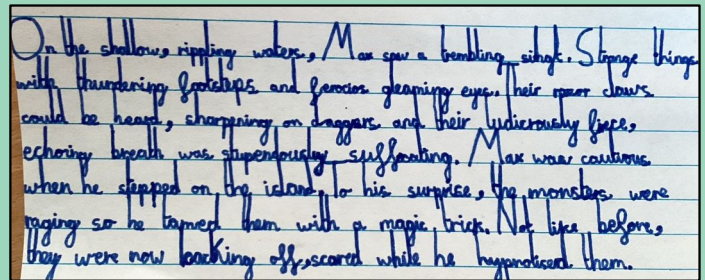 On the shallow, rippling waters, Max saw a trembling sihgt. Strange things
with thundering footsteps and ferocios gleaming eyes. Their claws
could be heard, sharpening on daggars and their ludicrously firce,
echoring breath was stupendously suffocating. Max was cautious
when he stepped on the island. To his surprise, the monsters were
raging so he tamed them with a magic trick. Not like before,
they were now backing off, scared while he hypnotised them.